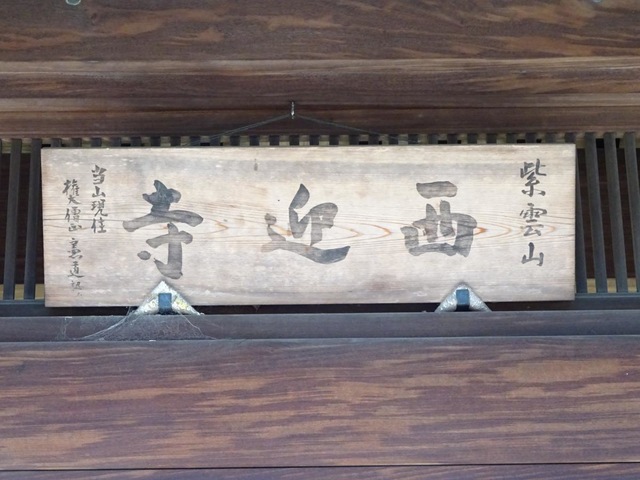 紫雲山
西迎寺
当山現住
権大僧正